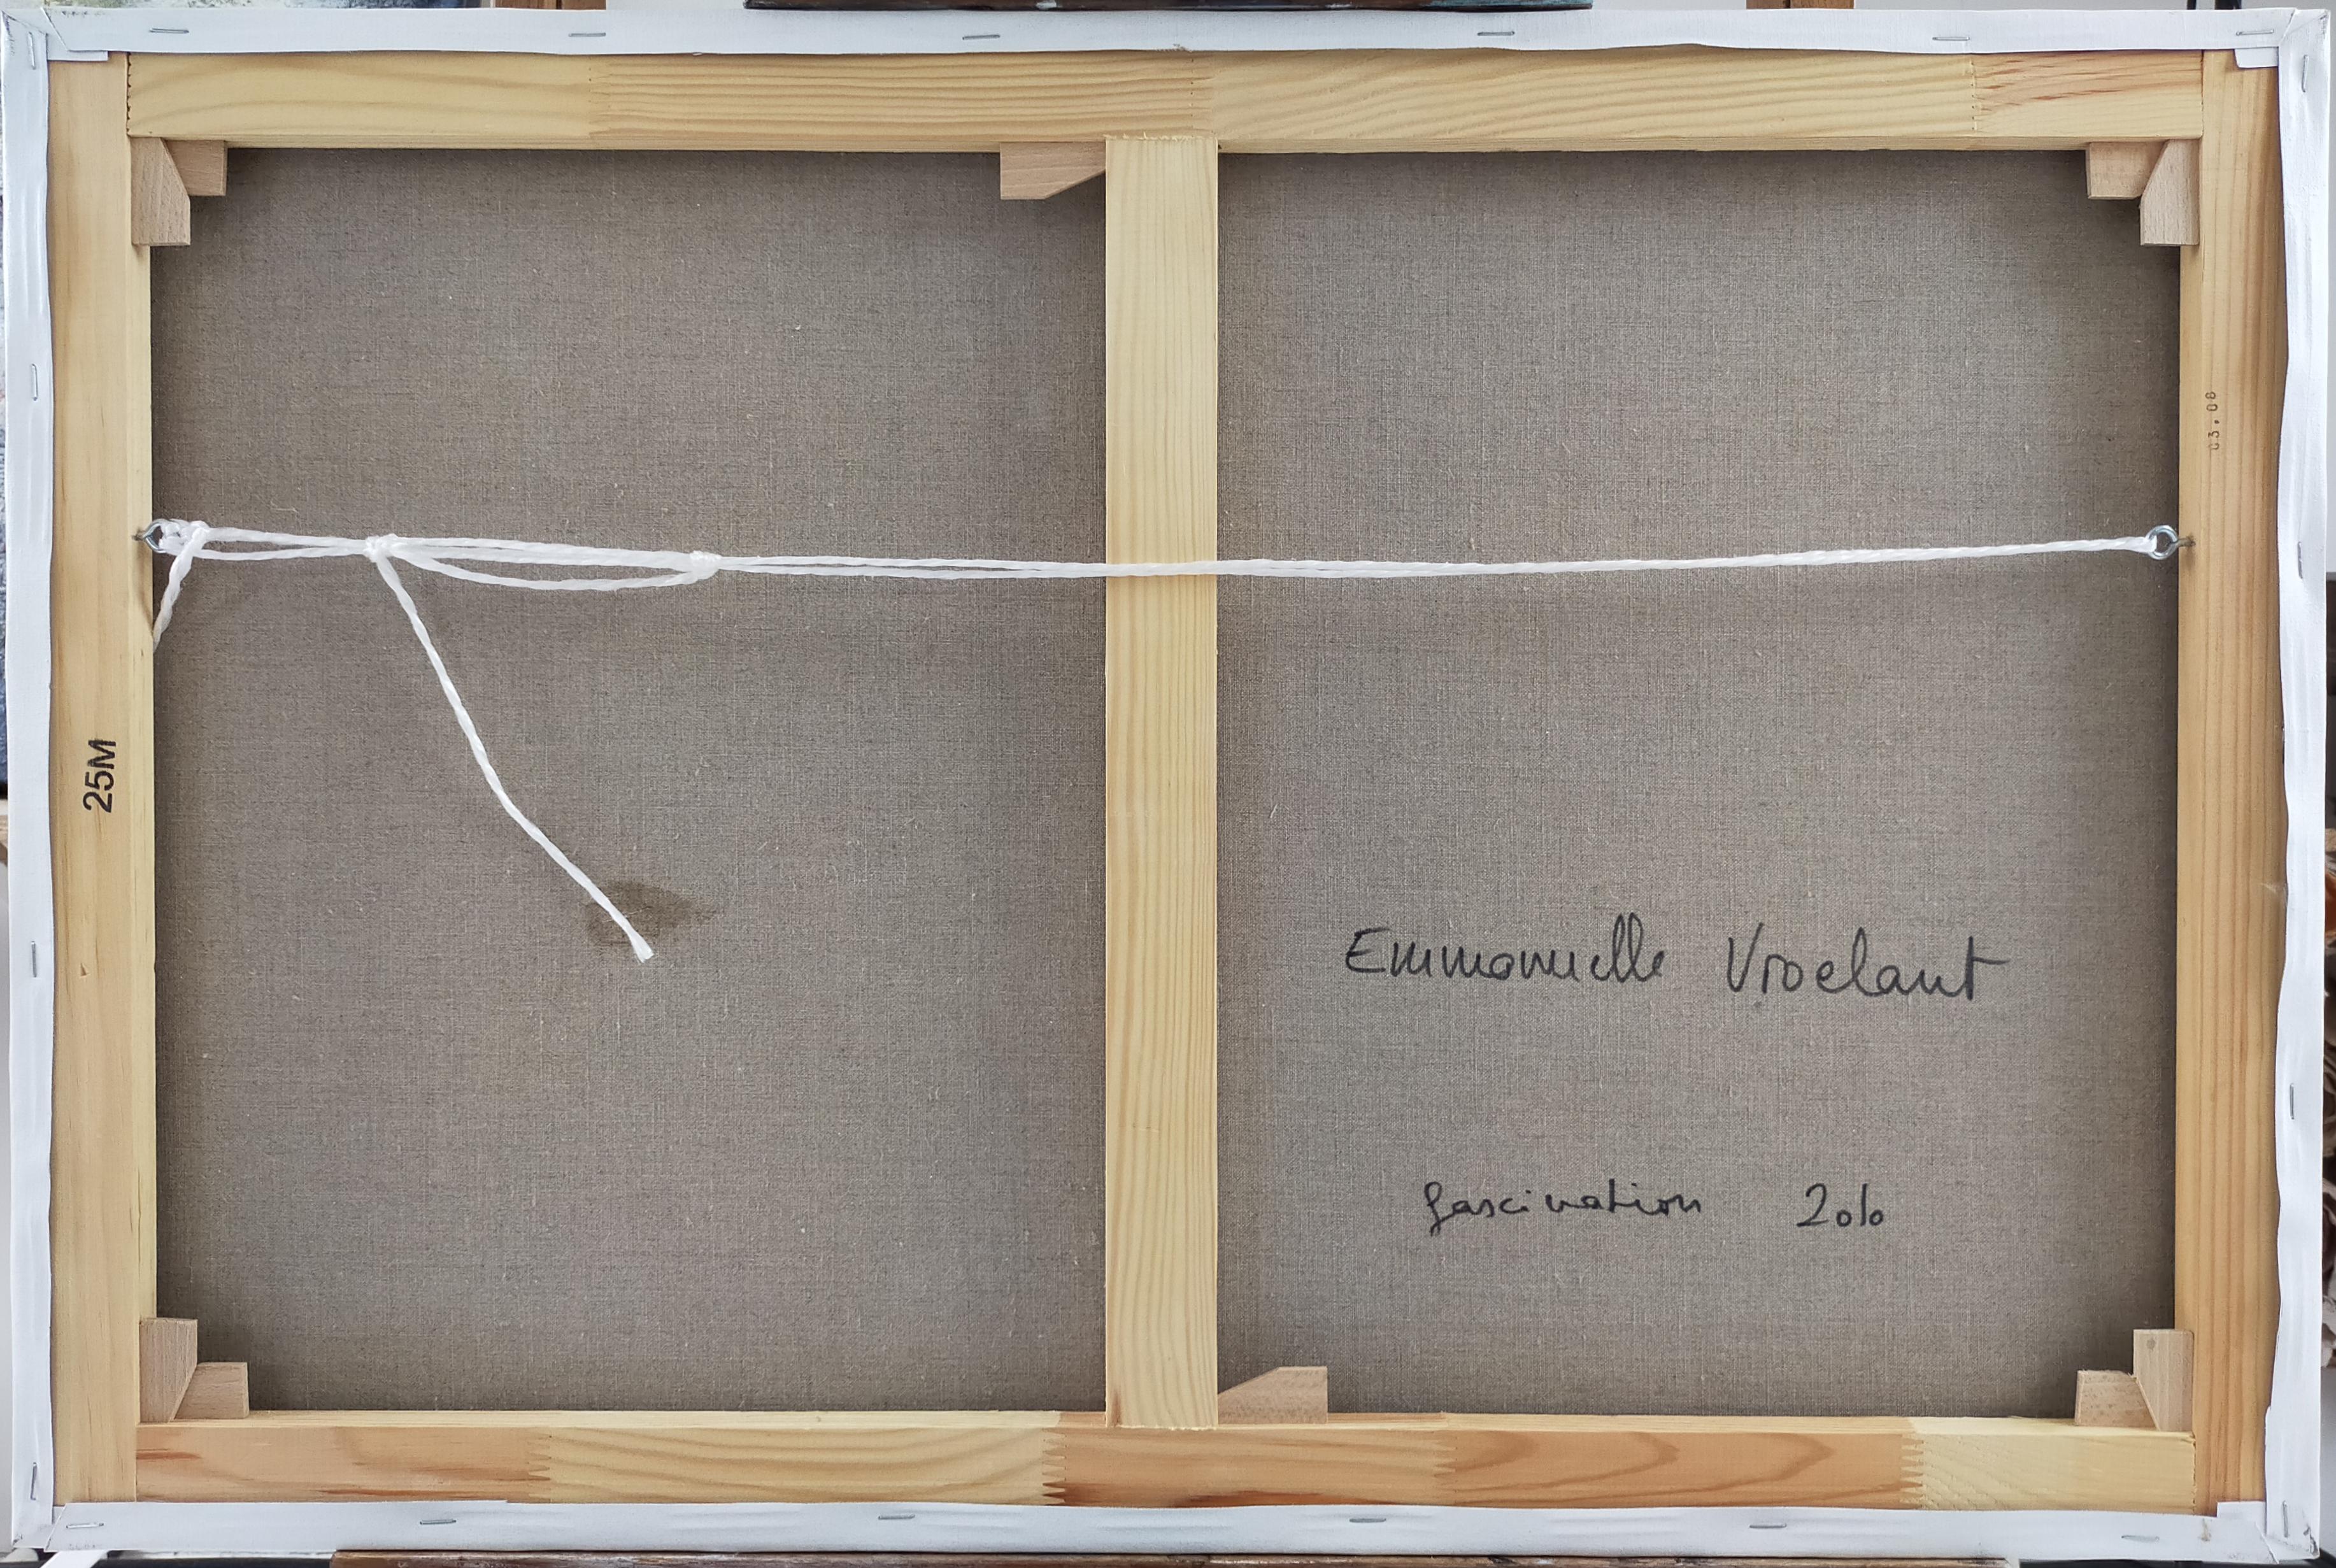 03.08
25M
Emmanuelle Vroelant
fascination 2010